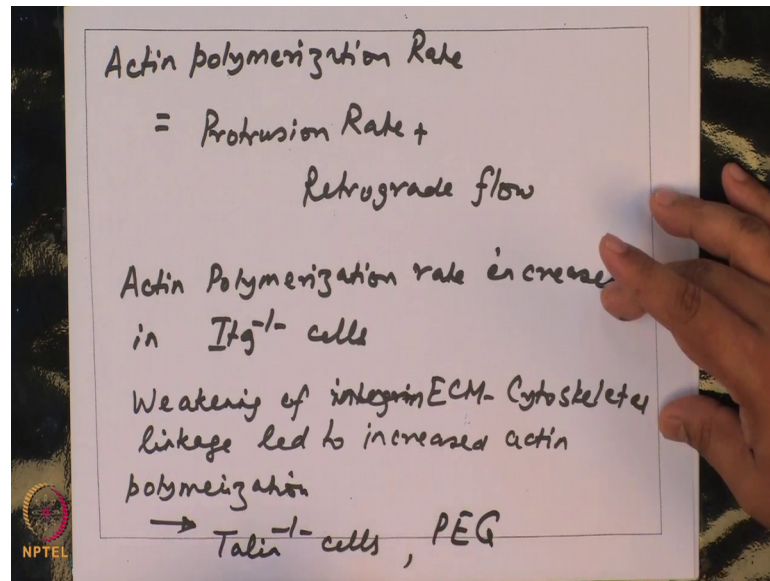 Actin polymerization Rate
= Protrusion Rate +
Retrograde flow
Actin Polymerization rate increase
in Itg-/- cells
Weakening of ECM- Cytoskeletal
linkage led to increased actin
polymerization
→ Talin-/- cells, PEG
NPTEL